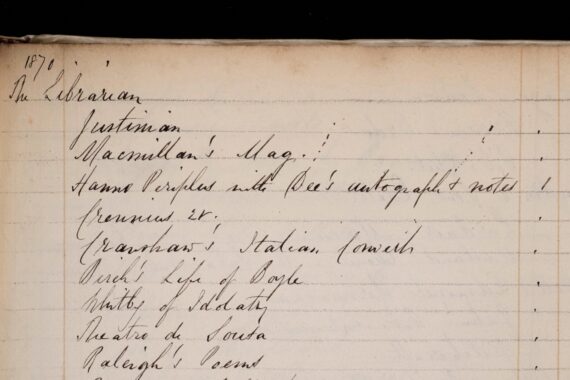 1870
The Librarian
Justinian
Macmillan's Mag.
Hanno Periplus with Dee's autograph & notes 1
Crennius &c.
Crashaw's Italian Convert
Birch's Life of Boyle
Whitby of Idolatry
Theatro de Sousa
Raleigh's Poems